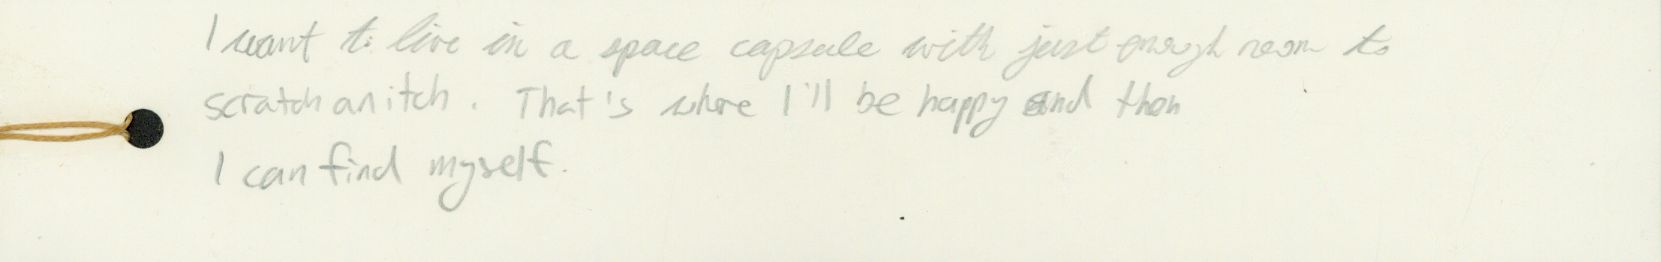 I want to live in a space capsule with just enough room to
scratch an itch. That's where I'll be happy and then
I can find myself.